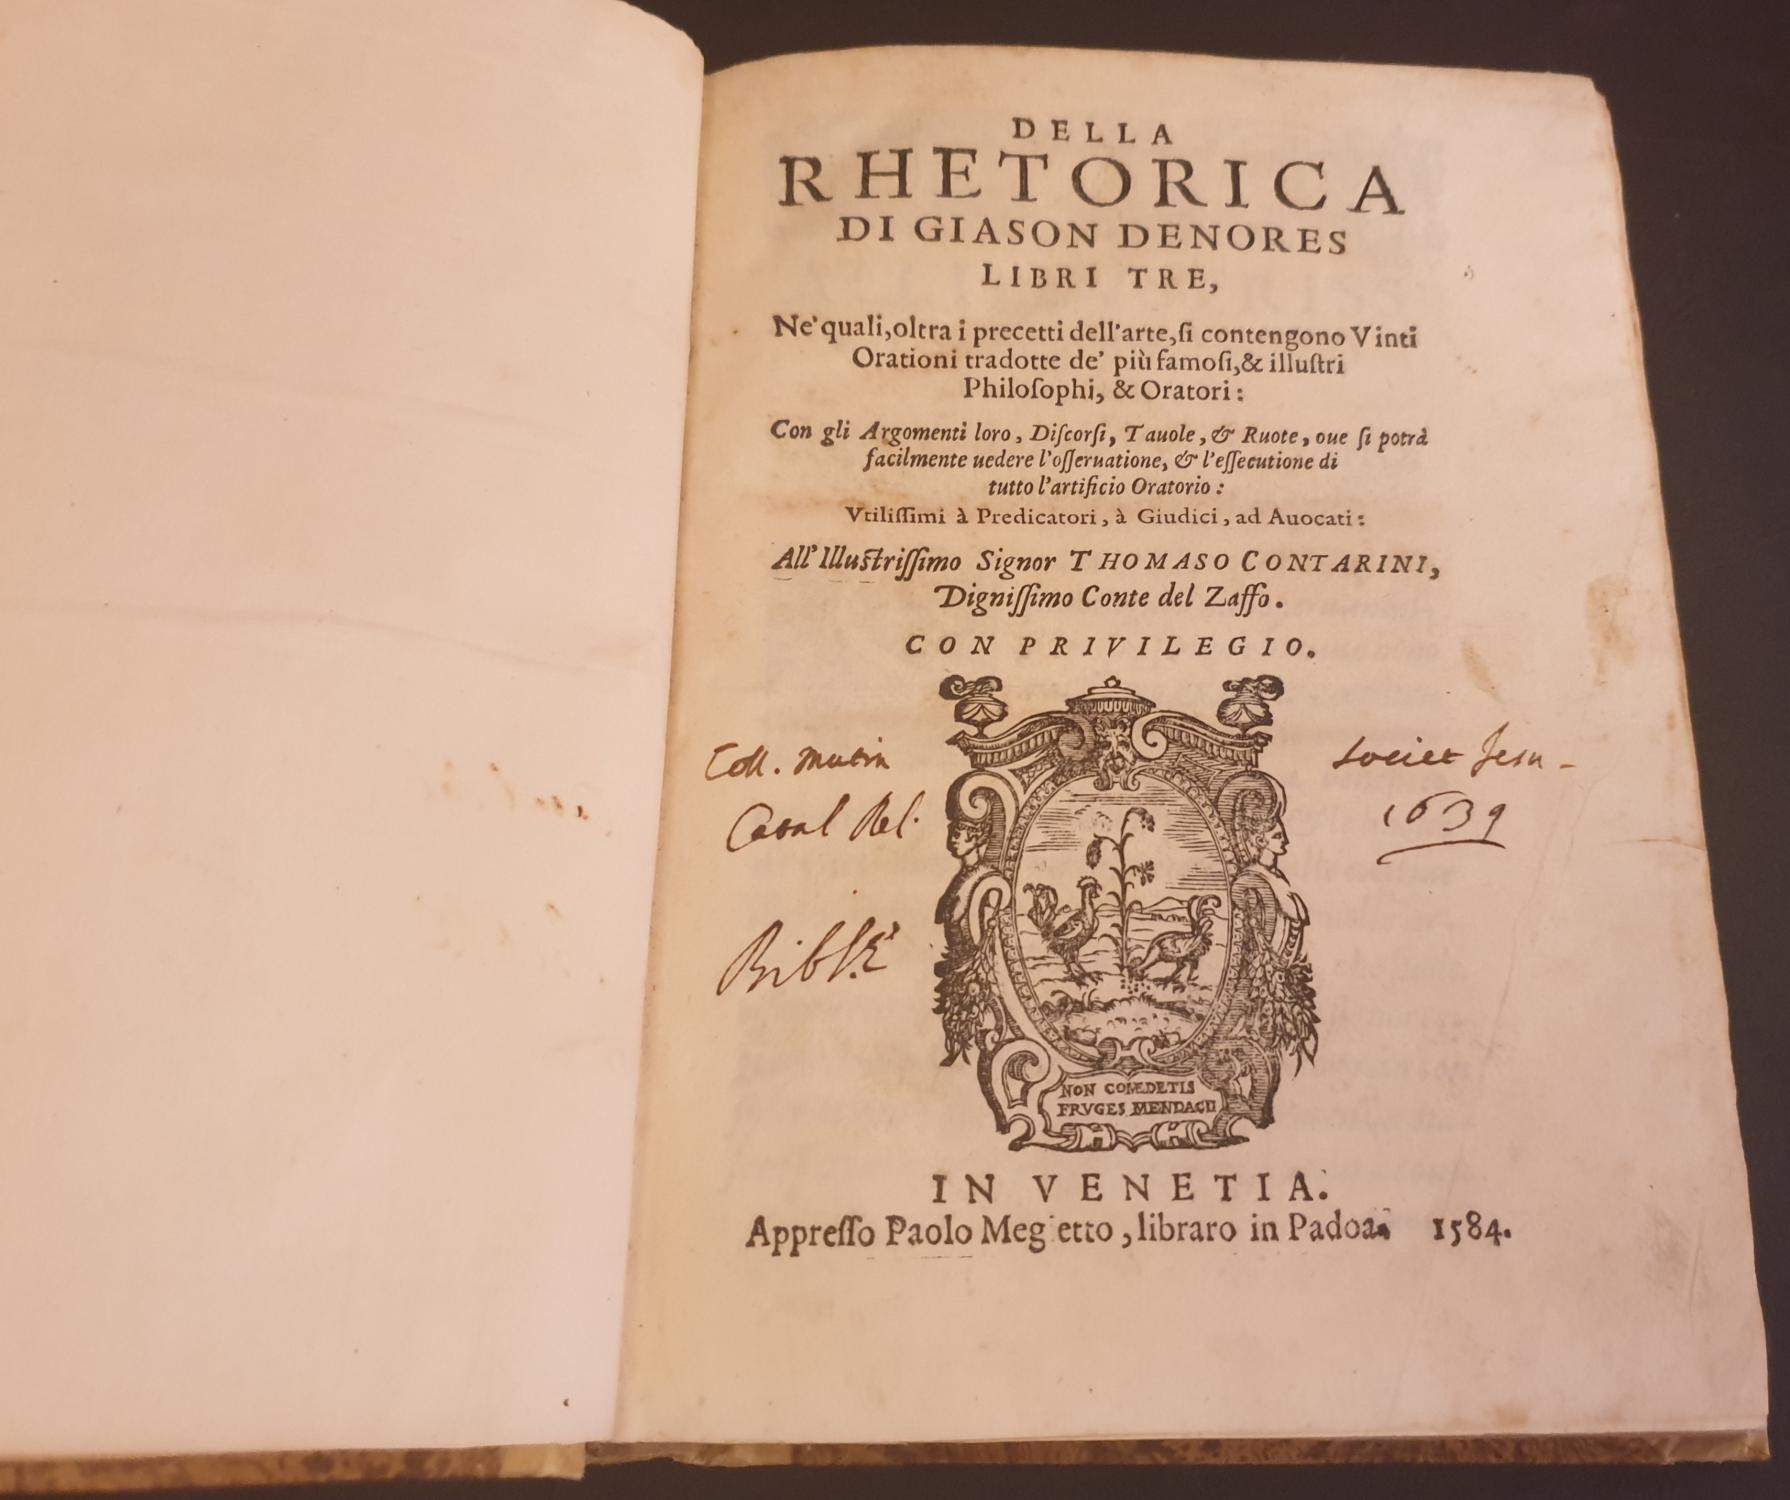 DELLA
RHETORICA
DI GIASON DENORES
LIBRI TRE,
Ne'quali,oltra i precetti dell'arte,ſi contengono Vinti
Orationi tradotte de' più famoſi,& illuſtri
Philoſophi, & Oratori:
Con gli Argomenti loro, Diſcorſi, Tauole, & Ruote, oue ſi potrà
facilmente uedere l'oſſeruatione, & l'eſſecutione di
tutto l'artificio Oratorio:
Vtiliſſimi à Predicatori, à Giudici, ad Auocati:
All'Illuſtriſſimo Signor THOMASO CONTARINI,
Digniſſimo Conte del Zaffo.
CON PRIVILEGIO.
Coll. Mutin
Societ Jesu -
Catal Rel.
1639
NON COMEDETIS
FRVGES MENDACII
IN VENETIA.
Appreſſo Paolo Megietto, libraro in Padoa. 1584.